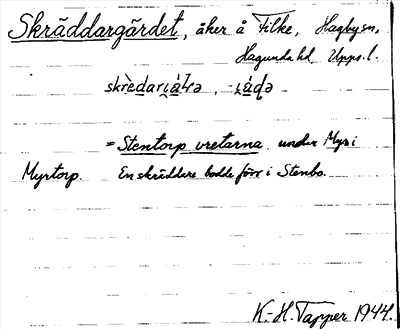 Skräddargärdet, åker å Filke, Hagbysn,
Hagunda hd, Upps. l.
= Stentorp vretarna under Myr i
Myrtorp. En skräddare bodde förr i Stenbo.
K.-H. Tapper 1944.